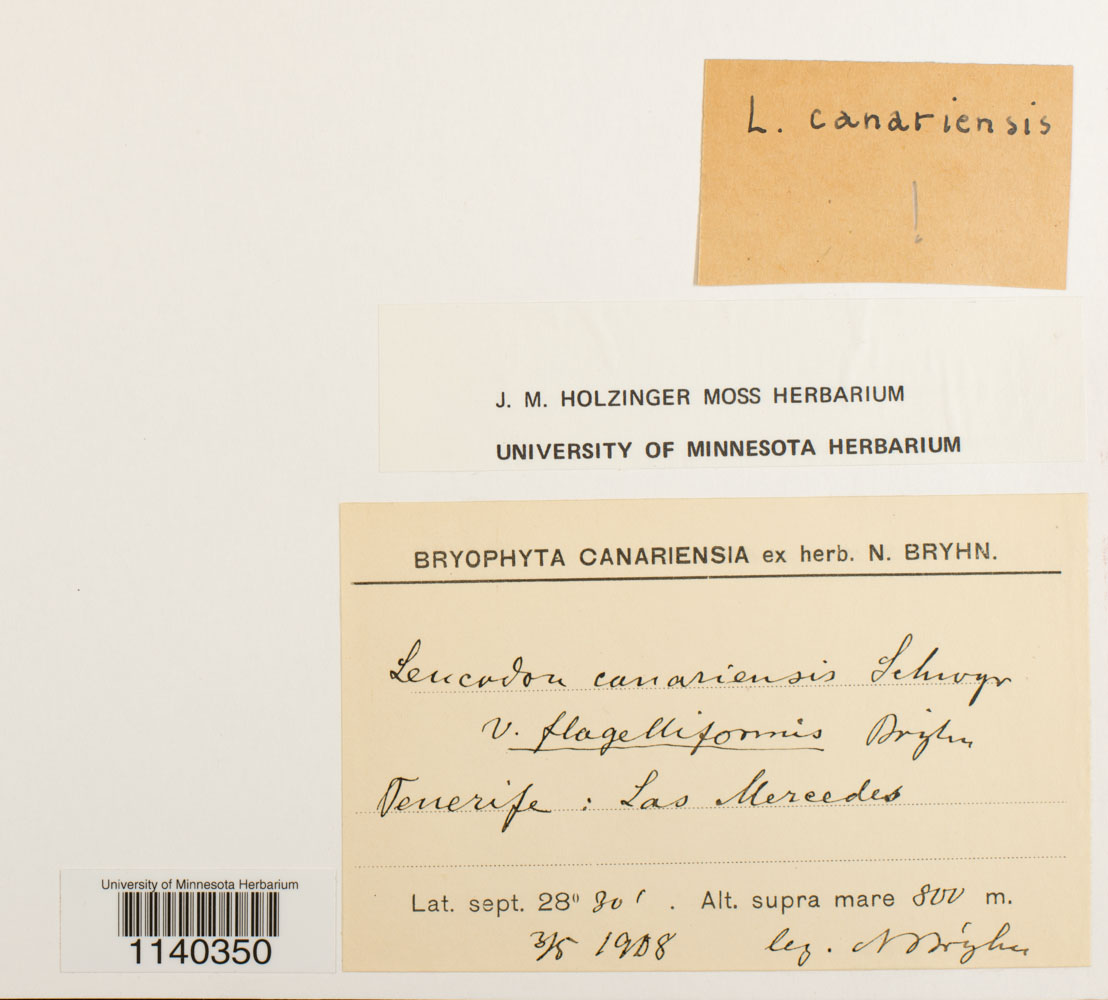 L. canariensis
!
J. M. HOLZINGER MOSS HERBARIUM
UNIVERSITY OF MINNESOTA HERBARIUM
BRYOPHYTA CANARIENSIA ex herb. N. BRYHN.
Leucodon canariensis Schwgr
v. flagelliformis Bryhn
Tenerife : Las Mercedes
Lat. sept. 28° 30' . Alt. supra mare 800 m.
3/5 1908 leg. N Bryhn
University of Minnesota Herbarium
1140350